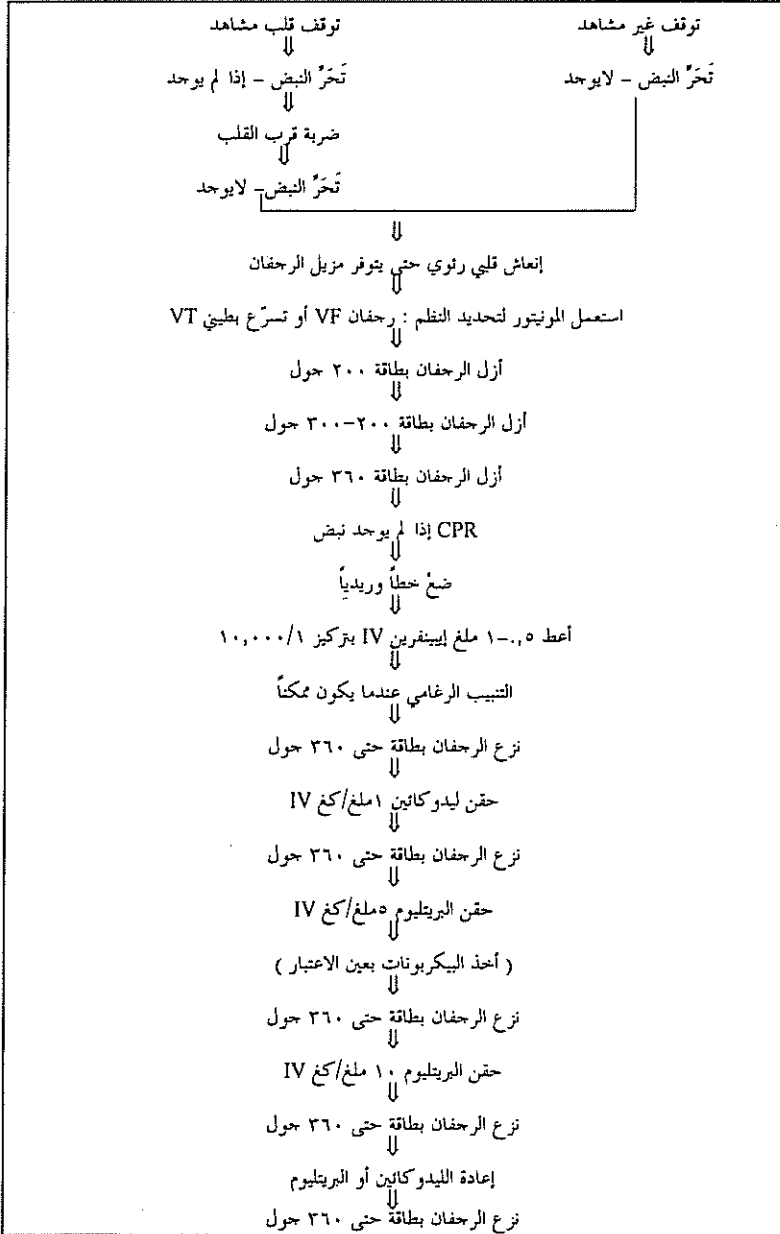 توقف قلب مشاهد
توقف غير مشاهد
⇓
⇓
تَحَرَّ النبض – إذا لم يوجد
تَحَرَّ النبض – لايوجد
⇓
ضربة قرب القلب
⇓
تَحَرَّ النبض– لايوجد
⇓
إنعاش قلبي رئوي حتى يتوفر مزيل الرجفان
⇓
استعمل المونيتور لتحديد النظم : رجفان VF أو تسرّع بطيني VT
⇓
أزل الرجفان بطاقة ٢٠٠ جول
⇓
أزل الرجفان بطاقة ٢٠٠–٣٠٠ جول
⇓
أزل الرجفان بطاقة ٣٦٠ جول
⇓
CPR إذا لم يوجد نبض
⇓
ضعْ خطاً وريدياً
⇓
أعط ٠,٥–١ ملغ إيبينفرين IV بتركيز ١٠,٠٠٠/١
⇓
التنبيب الرغامي عندما يكون ممكناً
⇓
نزع الرجفان بطاقة حتى ٣٦٠ جول
⇓
حقن ليدوكائين ١ملغ/كغ IV
⇓
نزع الرجفان بطاقة حتى ٣٦٠ جول
⇓
حقن البريتليوم ٥ملغ/كغ IV
⇓
( أخذ البيكربونات بعين الاعتبار )
⇓
نزع الرجفان بطاقة حتى ٣٦٠ جول
⇓
حقن البريتليوم ١٠ ملغ/كغ IV
⇓
نزع الرجفان بطاقة حتى ٣٦٠ جول
⇓
إعادة الليدوكائين أو البريتليوم
⇓
نزع الرجفان بطاقة حتى ٣٦٠ جول